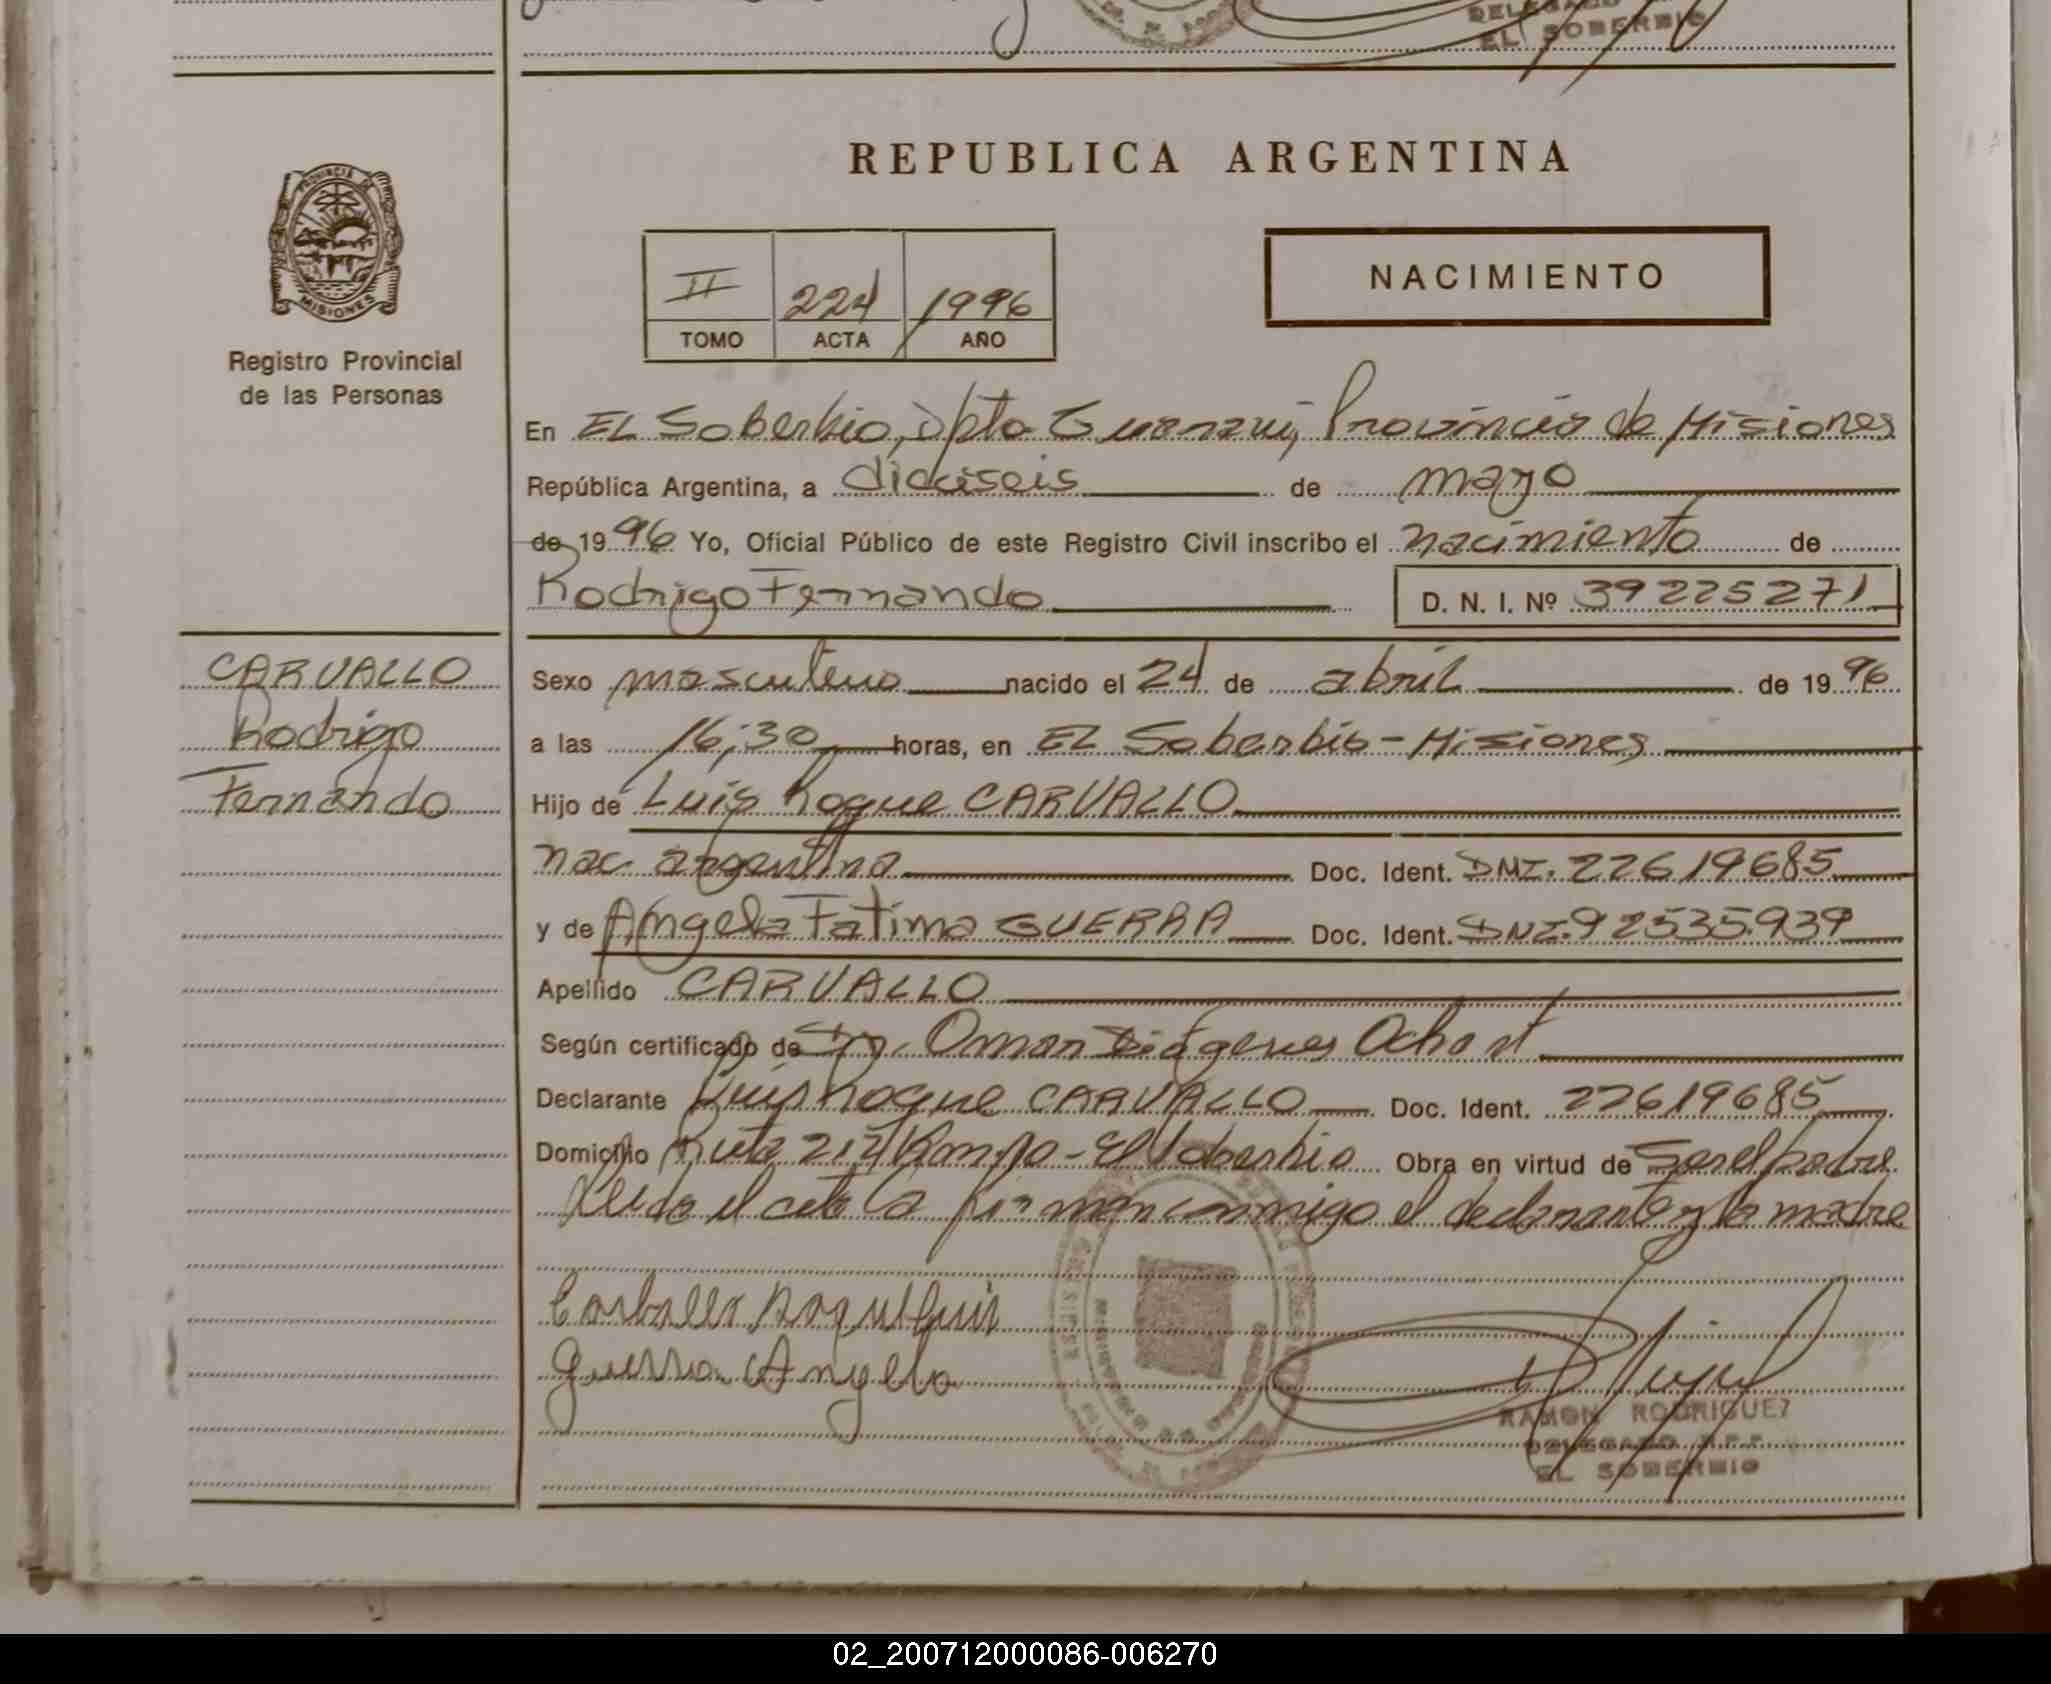 DELEGADO
EL SOBERBIO
REPUBLICA ARGENTINA
PROVINCIA DE
MISIONES
Registro Provincial
de las Personas
II 224 1996
TOMO ACTA AÑO
NACIMIENTO
En EL Soberbio, Dpto Guaraní, Provincia de Misiones
República Argentina, a dieciseis de mayo
de 1996 Yo, Oficial Público de este Registro Civil inscribo el nacimiento de
Rodrigo Fernando D. N. I. Nº 39225271
CARVALLO
Rodrigo
Fernando
Sexo masculino nacido el 24 de abril de 1996
a las 16;30 horas, en EL Soberbio - Misiones
Hijo de Luis Roque CARVALLO
nac. argentina Doc. Ident. DNI. 22619685
y de Angela Fatima GUERRA Doc. Ident. DNI. 92535939
Apellido CARVALLO
Según certificado de Dr. Omar Diógenes
Declarante Luis Roque CARVALLO Doc. Ident. 22619685
Domicilio Ruta 212 - El Soberbio Obra en virtud de Ser el padre
Leida el acta la firman conmigo el declarante y la madre
Carballo Roque Luis
Guerra Angela
RAMON RODRIGUEZ
DELEGADO R.P.P.
EL SOBERBIO
02_200712000086-006270